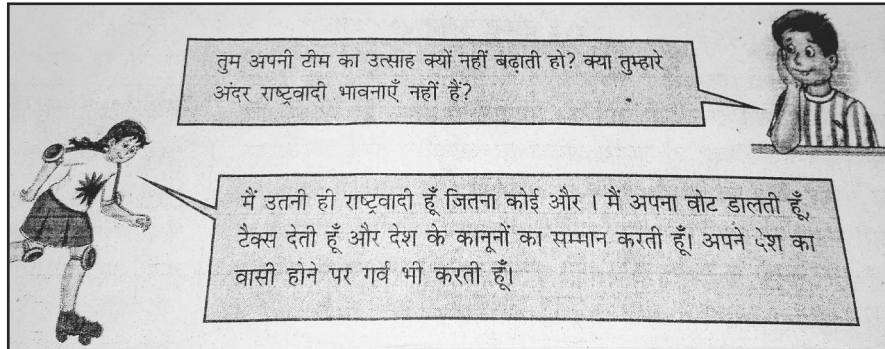 तुम अपनी टीम का उत्साह क्यों नहीं बढ़ाती हो? क्या तुम्हारे
अंदर राष्ट्रवादी भावनाएँ नहीं हैं?
मैं उतनी ही राष्ट्रवादी हूँ जितना कोई और । मैं अपना वोट डालती हूँ,
टैक्स देती हूँ और देश के कानूनों का सम्मान करती हूँ। अपने देश का
वासी होने पर गर्व भी करती हूँ।